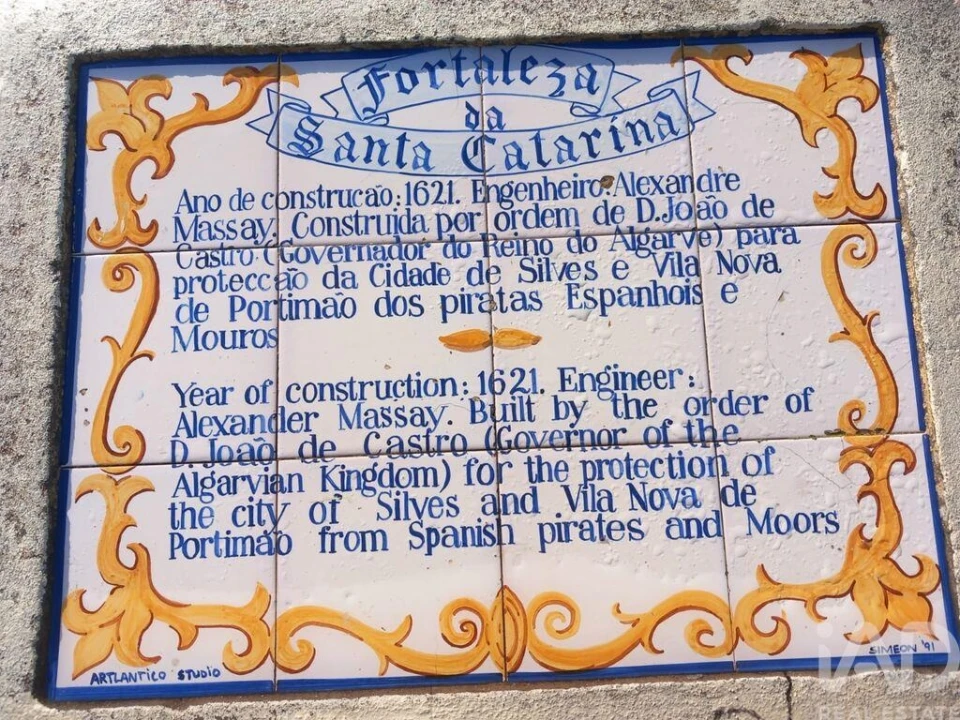 Fortaleza
da
Santa Catarina
Ano de construcão: 1621. Engenheiro: Alexandre
Massay. Construida por ordem de D. João de
Castro (Governador do Reino do Algarve) para
proteccão da Cidade de Silves e Vila Nova
de Portimão dos piratas Espanhois e
Mouros
Year of construction: 1621. Engineer:
Alexander Massay. Built by the order of
D. João de Castro (Governor of the
Algarvian Kingdom) for the protection of
the city of Silves and Vila Nova de
Portimão from Spanish pirates and Moors
ARTLANTICO STUDIO
SIMEON '91
iAD
REAL ESTATE